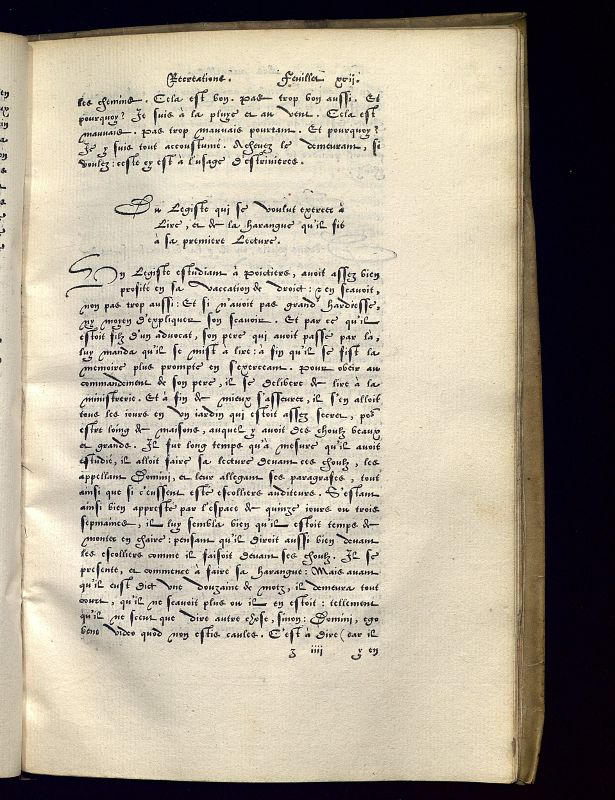 Recreations. Feuillet xxij.
les chemins. Cela est bon. pas trop bon aussi. Et
pourquoy? Je suis à la pluye et au vent. Cela est
mauvais. pas trop mauvais pourtant. Et pourquoy?
Je y suis tout accoustumé. Achevez le demeurant, si
voulez: ceste cy est à l'usage d'estrivieres.
Du Legiste qui se voulut exercer à
Lire, et de la harangue qu'il fit
à sa premiere Lecture.
Un Legiste estudiant à Poictiers, avoit assez bien
profité en sa vaccation de droict: en scavoit,
non pas trop aussi: Et si n'avoit pas grand' hardiesse,
ny moyen d'expliquer son scavoir. Et par ce qu'il
estoit filz d'un advocat, son pere qui avoit passé par là,
luy manda qu'il se mist à lire: à fin qu'il se fist la
memoire plus prompte en s'exercent. Pour obeir au
commandement de son pere, il se delibere de lire à la
ministrerie. Et à fin de mieux s'asseurer, il s'en alloit
tous les iours en un iardin qui estoit assez secret, por
estre loing de maisons, auquel y avoit des choulx beaux
et grands. Il fut long temps qu'à mesure qu'il avoit
estudié, il alloit faire sa lecture devant ces choulx, les
appellant Domini, et leur allegant ses paragrafes, tout
ainsi que si c'eussent esté escolliers auditeurs. S'estant
ainsi bien appresté par l'espace de quinze iours ou trois
sepmaines, il luy sembla bien qu'il estoit temps de
monter en chaire: pensant qu'il diroit aussi bien devant
les escolliers comme il faisoit devant ses choulx. Il se
presente, et commence à faire sa harangue: Mais avant
qu'il eust dict une douzaine de motz, il demeura tout
court, qu'il ne scavoit plus ou il en estoit: tellement
qu'il ne sceut que dire autre chose, sinon: Domini, ego
bene video quod non estis caules. C'est à dire (car il
iiii y en